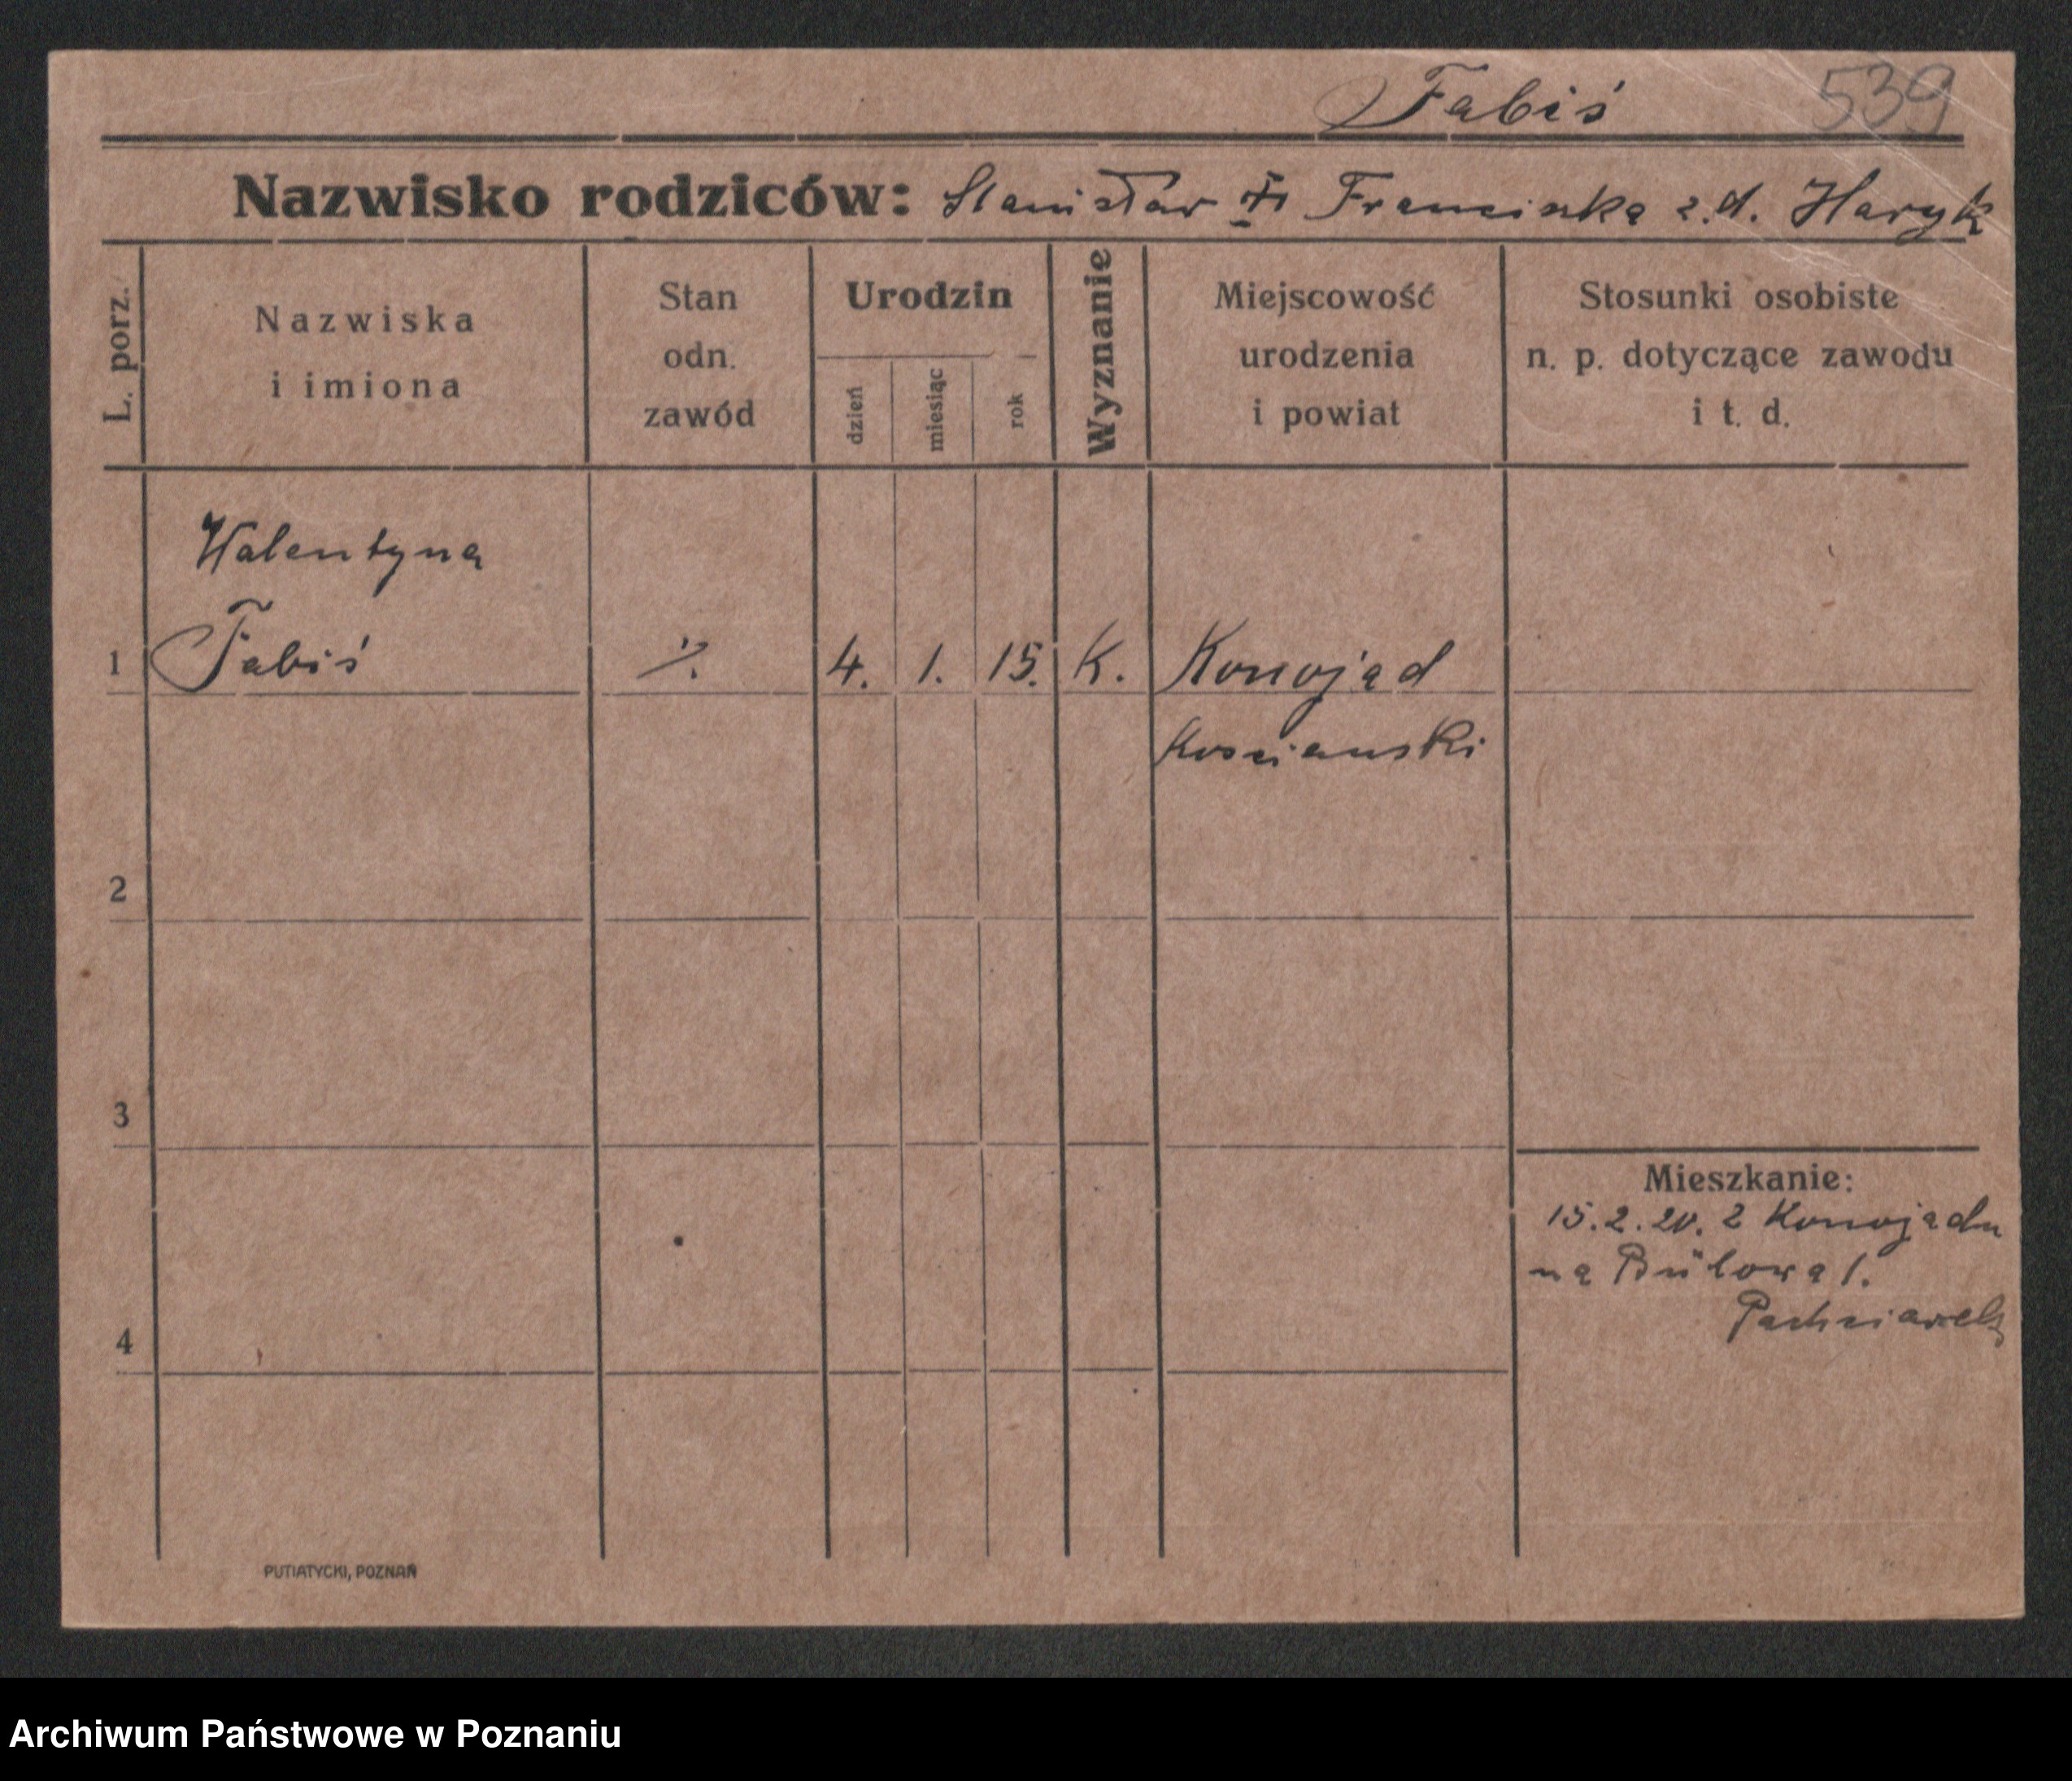 Fabiś 539
Nazwisko rodziców: Stanisław Franciszka z.d. Haryk
L. porz.
Nazwiska
i imiona
Stan
odn.
zawód
Urodzin
dzień
miesiąc
rok
Wyznanie
Miejscowość
urodzenia
i powiat
Stosunki osobiste
n. p. dotyczące zawodu
i t. d.
Walentyna
1 Fabiś 4. 1. 15. K. Konojad
Kościanski
2
3
Mieszkanie:
15.2.20. z Konojadu
na Bülowa 1.
4
PUTIATYCKI, POZNAŃ
Archiwum Państwowe w Poznaniu